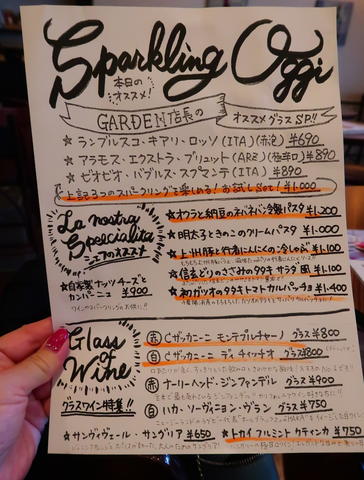 Sparkling Oggi
本日の
オススメ!
GARDEN店長の
オススメグラスSP!!
★ランブルスコ・キアリ・ロッソ(ITA)(赤泡) ¥690
★アラモス・エクストラ・ブリュット(ARZ)(極辛口) ¥890
★ゼオビオ・バブルス・スプマンテ(ITA) ¥890
上記3つのスパークリングを楽しめる!お試しSet! ¥1.000
La nostra
Specialita
シェフのオススメ
★自家製ナッツチーズ
カンパーニュ ¥900
★オクラと納豆のネバネバン冷製パスタ ¥1.200
★明太子ときのこのクリームパスタ ¥1.000
★上州豚と行者にんにくの冷しゃぶ ¥1.100
★信玄どりのささみのタタキ サラダ風 ¥1.100
★初ガツオのタタキ トマトカルパッチョ ¥1.400
Glass
of
Wine
グラスワイン特集!!
赤 Cザッカニーニ モンテプルチャーノ グラス¥800
白 Cザッカニーニ ディ ティッチオ グラス¥800
赤 ナーリーヘッド・ジンファンデル グラス¥900
白 ハカ・ソーヴィニヨン・ヴラン グラス¥750
★サンヴィヴェール・サングリア ¥650
★トカイフルミント カティンカ ¥750